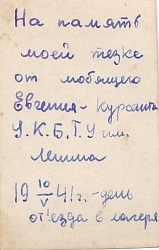 На память
моей тезке
от любящего
Евгения - курсанта
У.К.Б.Т.У им.
Ленина
19 10/V 41 г. - день
от'езда в лагеря